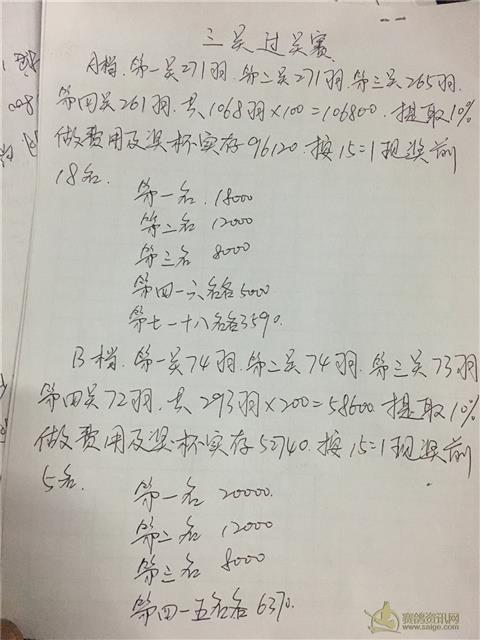 三关过关赛
A档.第一关271羽.第二关271羽.第三关265羽.
第四关261羽.共1068羽×100=106800.提取10%
做费用及奖杯实存96120.按15=1现奖前
18名.
第一名.18000
第二名 12000
第三名 8000
第四一六名各5000
第七一十八名各3590.
B档.第一关74羽.第二关74羽.第三关73羽
第四关72羽.共293羽×200=58600.提取10%
做费用及奖杯实存52740.按15=1现奖前
5名.
第一名 20000.
第二名 12000
第三名 8000
第四一五名各 6370.
赛鸽资讯网
www.saige.com